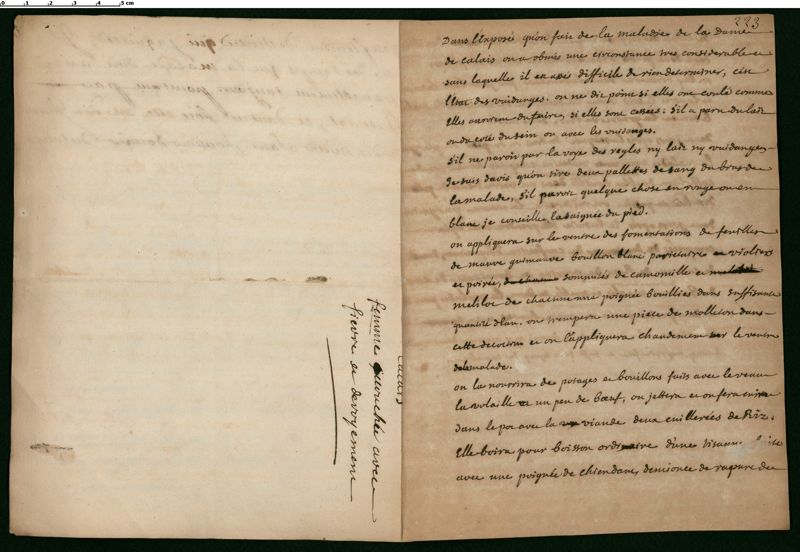 223
Dans l'Exposé qu'on fait de la maladie de la Dame
de calais on a obmis une circonstance tres considerable et
sans laquelle il est assés difficile de rien determiner, c'est
l'Etat des vuidanges. on ne dit point si elles ont coulé comme
elles auroient du faire, si elles sont cessées; s'il a paru du lait
ou du coté du sein ou avec les vuidanges.
s'il ne paroit par la voye des regles ny lait ny vuidanges
Je suis d'avis qu'on tire deux pallettes de sang du bras de
la malade, s'il paroit quelque chose en rouge ou en
blanc je conseille la saignée du pied.
on appliquera sur le ventre des fomentations de feuilles
de mauve guimauve bouillon blanc parietaire violiers
et poirée, sommités de camomille et
melilot de chacune une poignée bouillies dans suffisante
quantité d'eau. on trempera une piece de molleton dans
cette decoction et on l'appliquera chaudement sur le ventre
de la malade.
on la nourrira de potages et bouillons faits avec le veau
la volaille et un peu de bœuf, on jettera et on fera cuire
dans le pot avec la viande deux cuillerées de Riz.
Elle boira pour boisson ordinaire d'une tisanne faite
avec une poignée de chiendent, demionce de rapure de
Calais
femme accouchée avec
fievre et devoyement